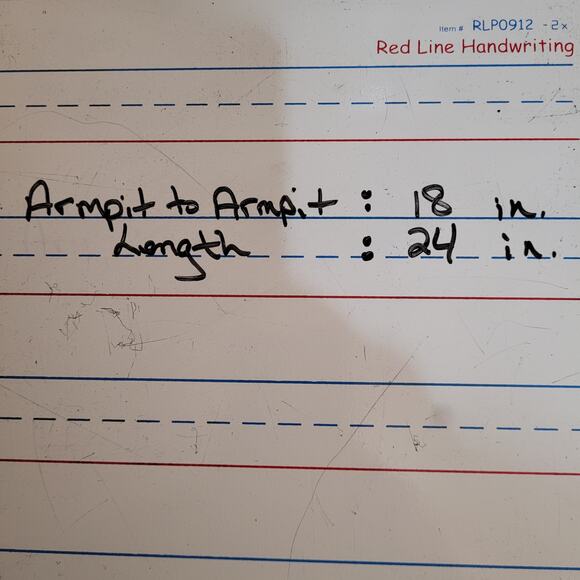 Item # RLP0912 -2x
Red Line Handwriting
Armpit to Armpit : 18 in.
Length : 24 in.